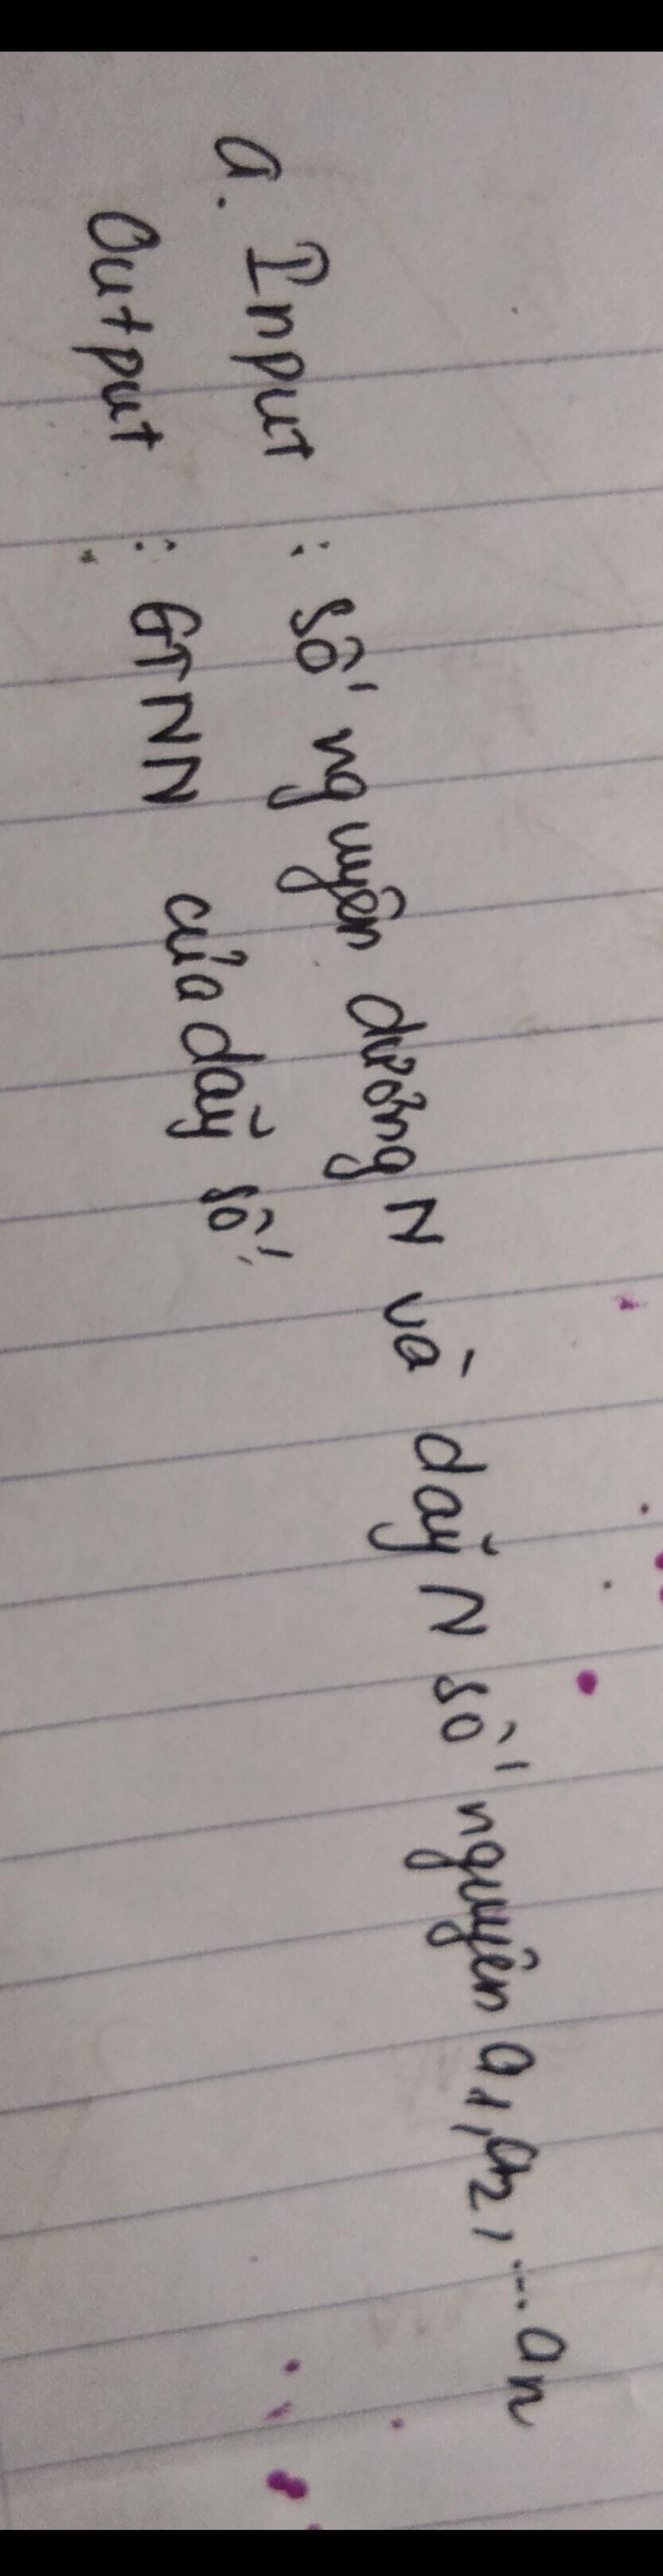 a. Input : số nguyên dương N và dãy N số nguyên a1, a2, ... an
Output : GTNN của dãy số